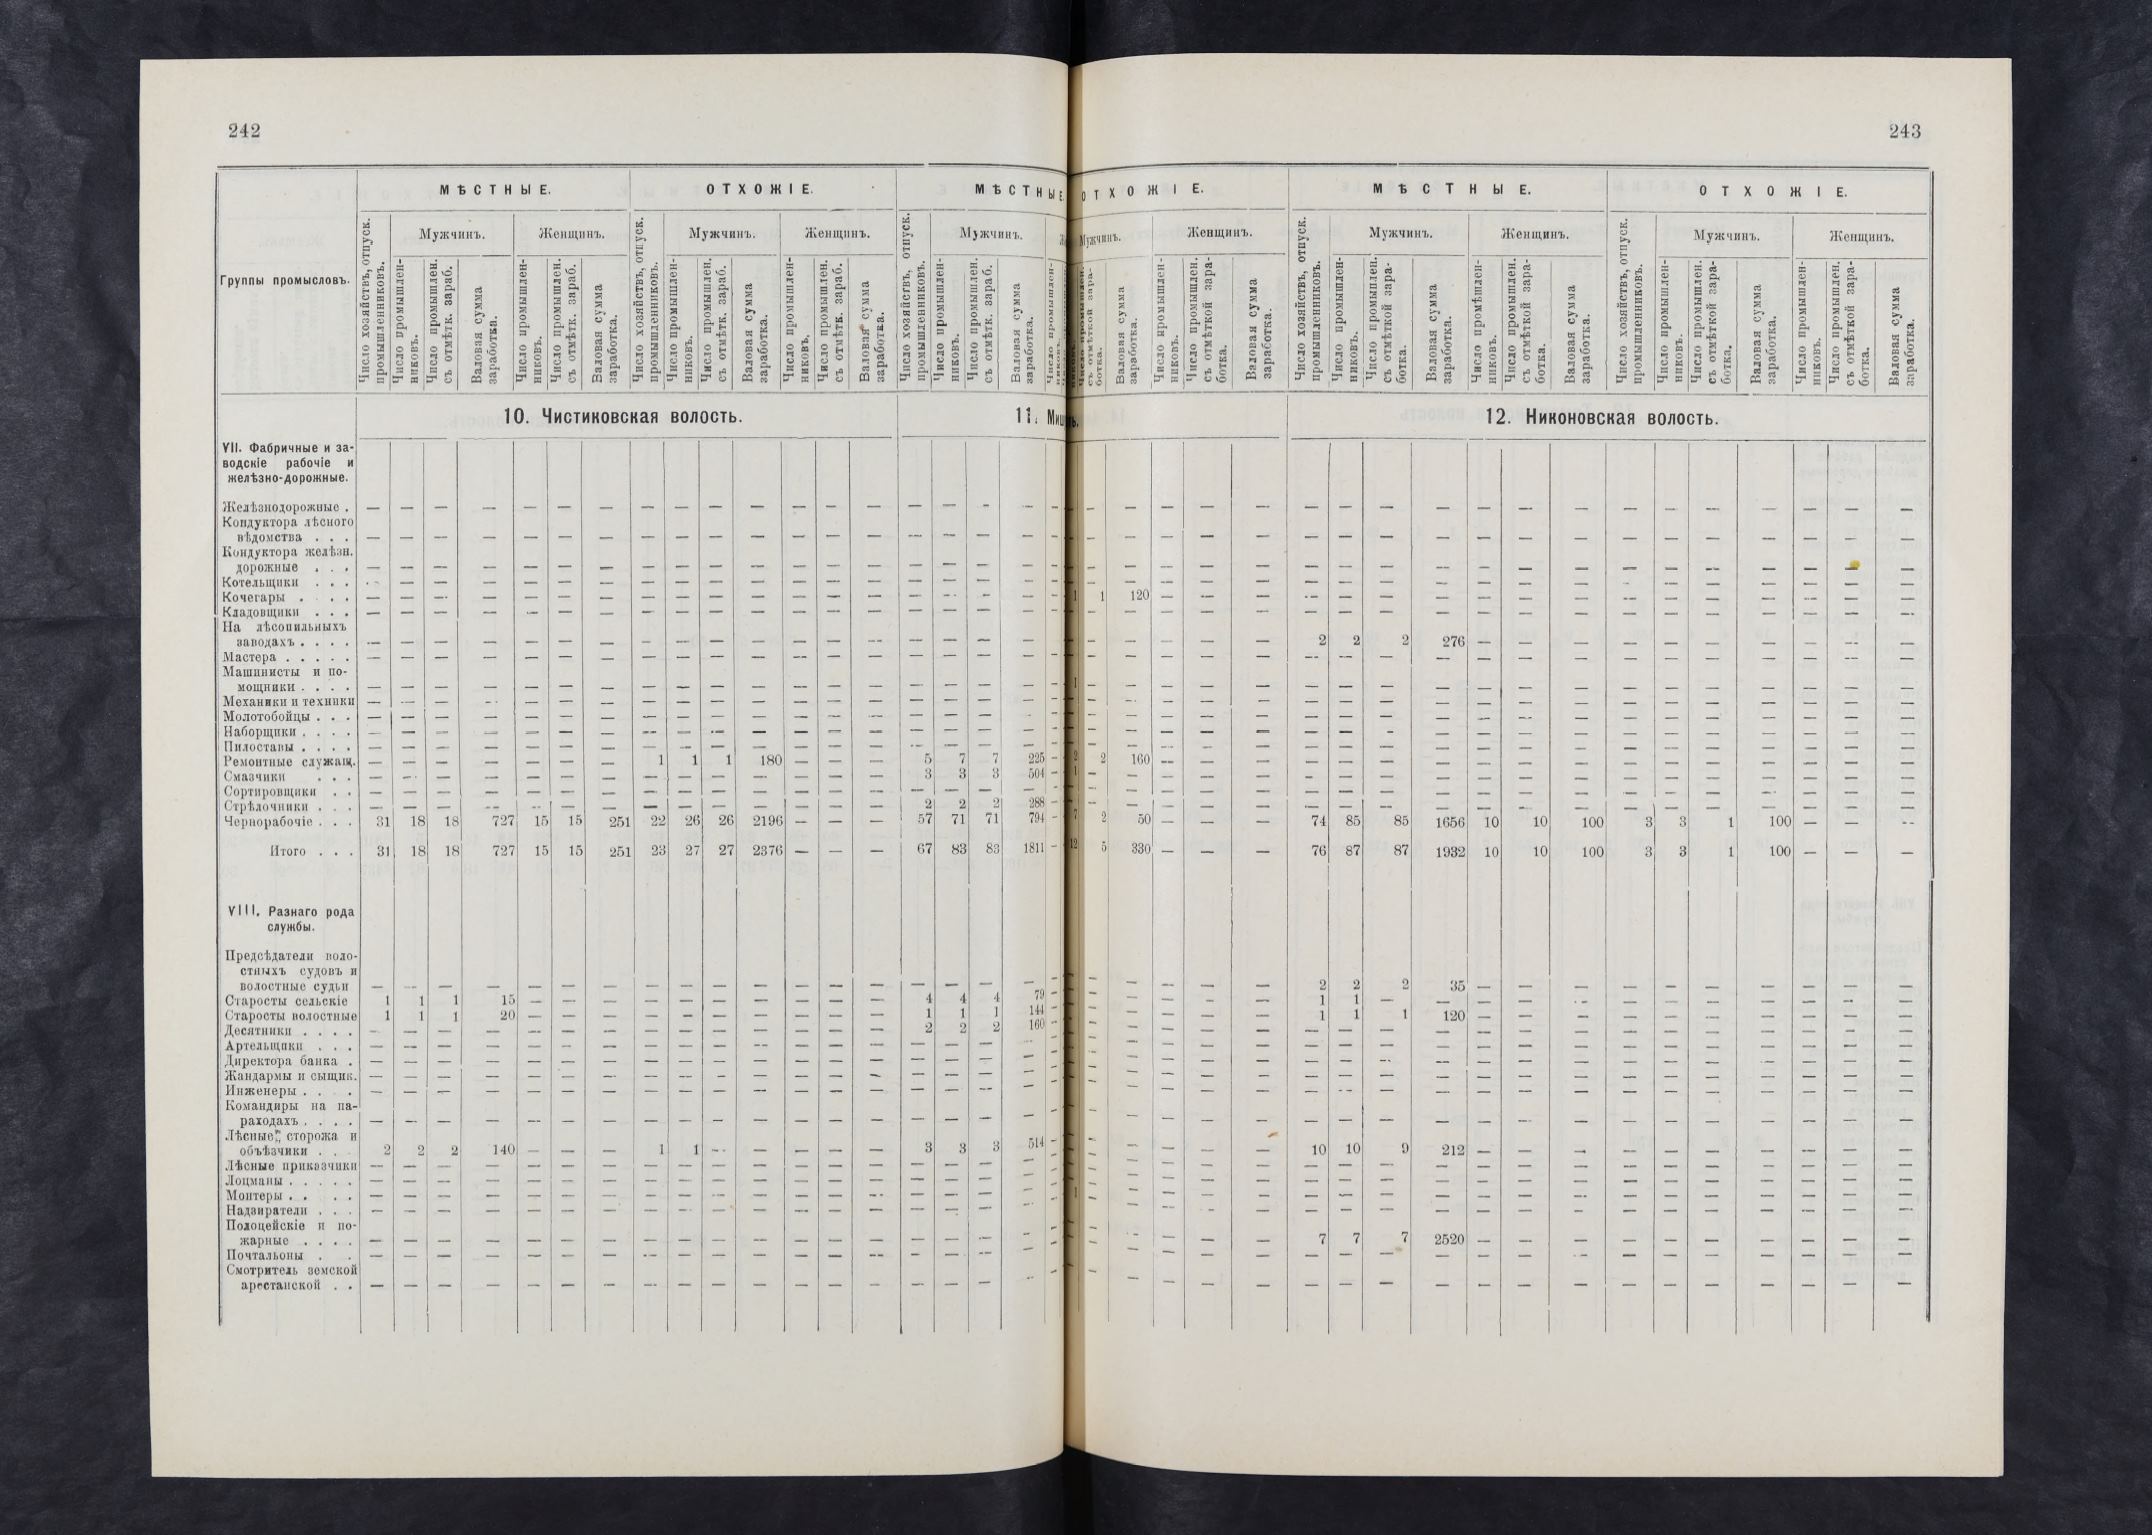 242
243
МѢСТНЫЕ. ОТХОЖІЕ. МѢСТНЫЕ ОТХОЖІЕ. МѢСТНЫЕ. ОТХОЖІЕ.
Группы промысловъ.
Мужчинъ. Женщинъ. Мужчинъ. Женщинъ. Мужчинъ. Мужчинъ. Женщинъ. Мужчинъ. Женщинъ. Мужчинъ. Женщинъ.
Число хозяйствъ, отпуск. промышленниковъ.
Число промышленниковъ.
Число промышлен. съ отмѣтк. зараб.
Валовая сумма заработка.
Число промышленниковъ.
Число промышлен. съ отмѣтк. зараб.
Валовая сумма заработка.
Число хозяйствъ, отпуск. промышленниковъ.
Число промышленниковъ.
Число промышлен. съ отмѣтк. зараб.
Валовая сумма заработка.
Число промышленниковъ.
Число промышлен. съ отмѣтк. зараб.
Валовая сумма заработка.
Число хозяйствъ, отпуск. промышленниковъ.
Число промышленниковъ.
Число промышлен. съ отмѣтк. зараб.
Валовая сумма заработка.
Валовая сумма заработка.
Число промышленниковъ.
Число промышлен. съ отмѣткой заработка.
Валовая сумма заработка.
Число хозяйствъ, отпуск. промышленниковъ.
Число промышленниковъ.
Число промышлен. съ отмѣткой заработка.
Валовая сумма заработка.
Число промышленниковъ.
Число промышлен. съ отмѣткой заработка.
Валовая сумма заработка.
Число хозяйствъ, отпуск. промышленниковъ.
Число промышленниковъ.
Число промышлен. съ отмѣткой заработка.
Валовая сумма заработка.
Число промышленниковъ.
Число промышлен. съ отмѣткой заработка.
Валовая сумма заработка.
10. Чистиковская волость. 11. Миш 12. Никоновская волость.
VII. Фабричные и за-
водскіе рабочіе и
желѣзно-дорожные.
Желѣзнодорожные .
Кондуктора лѣсного
вѣдомства . . .
Кондуктора желѣзн.
дорожные . . .
Котельщики . . .
Кочегары . . . . 1 1 120
Кладовщики . . .
На лѣсопильныхъ
заводахъ . . . . 2 2 2 276
Мастера . . . . .
Машинисты и по-
мощники . . . . 1
Механики и техники
Молотобойцы . . .
Наборщики . . . .
Пилоставы . . . .
Ремонтные служащ. 1 1 1 180 5 7 7 225 2 2 160
Смазчики . . . 3 3 3 504 1
Сортировщики . .
Стрѣлочники . . . 2 2 2 288
Чернорабочіе . . . 31 18 18 727 15 15 251 22 26 26 2196 — — — 57 71 71 794 7 2 50 — — — 74 85 85 1656 10 10 100 3 3 1 100 — — —
Итого . . . 31 18 18 727 15 15 251 23 27 27 2376 — — — 67 83 83 1811 12 5 330 — — — 76 87 87 1932 10 10 100 3 3 1 100 — — —
VIII. Разнаго рода
службы.
Предсѣдатели воло-
стныхъ судовъ и
волостные судьи 2 2 2 35
Старосты сельскіе 1 1 1 15 4 4 4 79 1 1 — —
Старосты волостные 1 1 1 20 1 1 1 144 1 1 1 120
Десятники . . . . 2 2 2 160
Артельщики . . .
Директора банка .
Жандармы и сыщик.
Инженеры . . .
Командиры на па-
раходахъ . . . .
Лѣсные сторожа и
объѣзчики . . 2 2 2 140 — — — 1 1 — 3 3 3 514 10 10 9 212
Лѣсные приказчики
Лоцманы . . . . .
Монтеры . . . . 1
Надзиратели . . .
Полоцейскіе и по-
жарные . . . . 7 7 7 2520
Почтальоны . .
Смотритель земской
арестанской . .